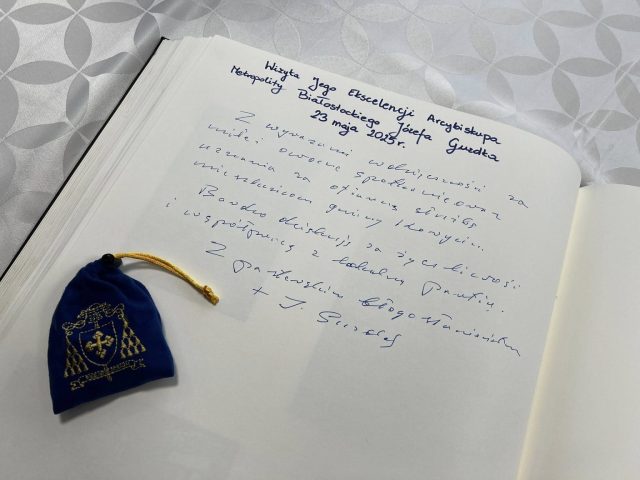 Wizyta Jego Ekscelencji Arcybiskupa
Metropolity Białostockiego Józefa Guzdka
23 maja 2025r.
Z wyrazami wdzięczności za
miłe i owocne spotkanie oraz
uznania za ofiarną służbę
mieszkańcom gminy
Bardzo dziękuję za życzliwość
i współpracę z lokalną parafią.
Z pasterskim błogosławieństwem
+ J. Guzdek